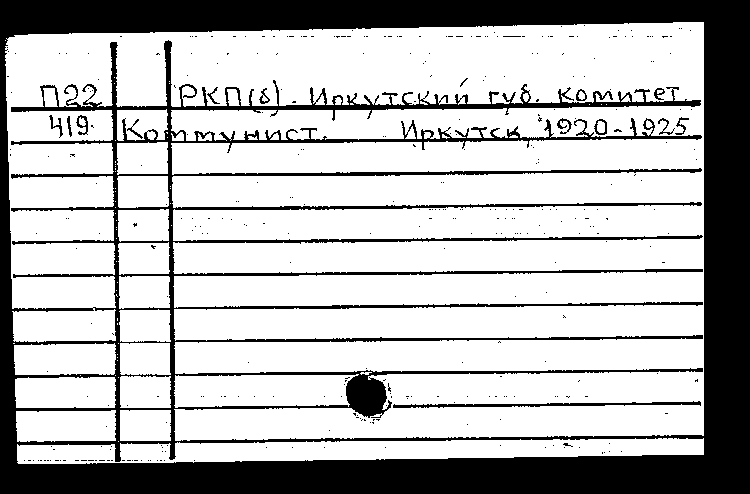 П22 РКП(б). Иркутский губ. комитет.
419 Коммунист. Иркутск, 1920-1925